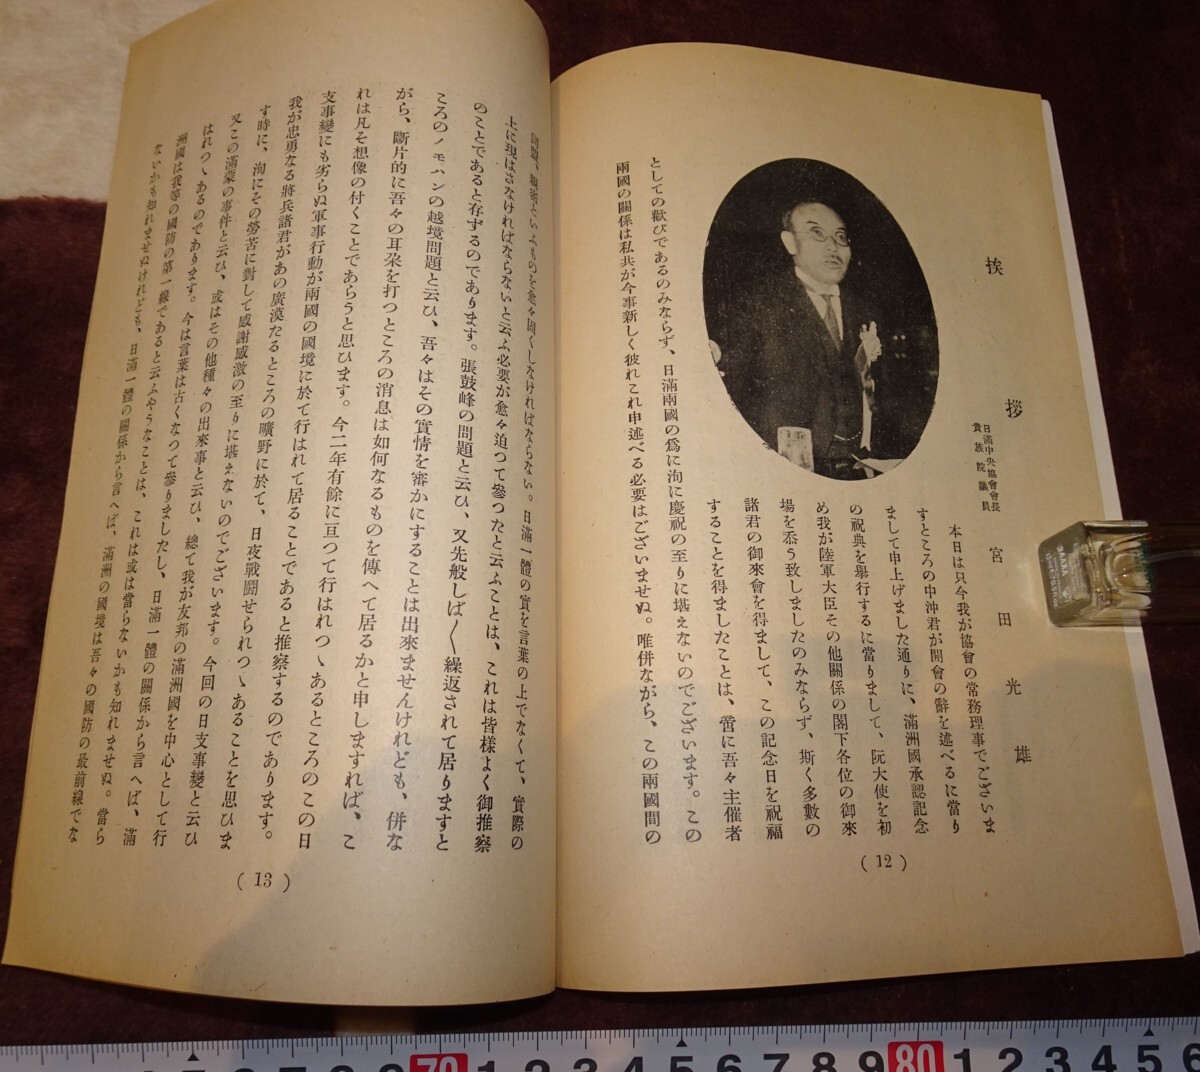 挨拶
日滿中央協會會長
貴族院議員
宮田光雄
本日は只今我が協會の常務理事でございま
すところの中沖君が開會の辭を述べるに當り
まして申上げました通りに、滿洲國承認記念
の祝典を擧行するに當りまして、阮大使を初
め我が陸軍大臣その他關係の閣下各位の御來
場を忝う致しましたのみならず、斯く多數の
諸君の御來會を得まして、この記念日を祝福
することを得ましたことは、啻に吾々主催者
としての歡びであるのみならず、日滿兩國の爲に洵に慶祝の至りに堪えないのでございます。この
兩國の關係は私共が今事新しく彼れこれ申述べる必要はございませぬ。唯併ながら、この兩國間の
(12)
といよものを愈々固くしなければならない。日滿一體の實を言葉の上でなくて、實際の
上に現はさなければならないと云ふ必要が愈々迫つて參つたと云ふことは、これは皆樣よく御推察
のことであると存ずるのであります。張鼓峰の問題と云ひ、又先般しば〱繰返されて居りますと
ころのノモハンの越境問題と云ひ、吾々はその實情を審かにすることは出來ませんけれども、併な
がら、斷片的に吾々の耳朶を打つところの消息は如何なるものを傳へて居るかと申しますれば、こ
れは凡そ想像の付くことであらうと思ひます。今二年有餘に亘つて行はれつゝあるところのこの日
支事變にも劣らぬ軍事行動が兩國の國境に於て行はれて居ることであると推察するのであります。
我が忠勇なる將兵諸君があの廣漠たるところの曠野に於て、日夜戰鬪せられつゝあることを思ひま
す時に、洵にその勞苦に對して感謝感激の至りに堪えないのでございます。今回の日支事變と云ひ
又この滿蒙の事件と云ひ、或はその他種々の出來事と云ひ、總て我が友邦の滿洲國を中心として行
はれつゝあるのであります。今は言葉は古くなつて參りましたし、日滿一體の關係から言へば、滿
洲國は我等の國防の第一線であると云ふやうなことは、これは或は當らないかも知れませぬ。當ら
ないかも知れませぬけれども、日滿一體の關係から言へば、滿洲の國境は吾々の國防の最前線でな
(13)
70 1 2 3 4 5 6 7 8 9 80 1 2 3 4 5 6